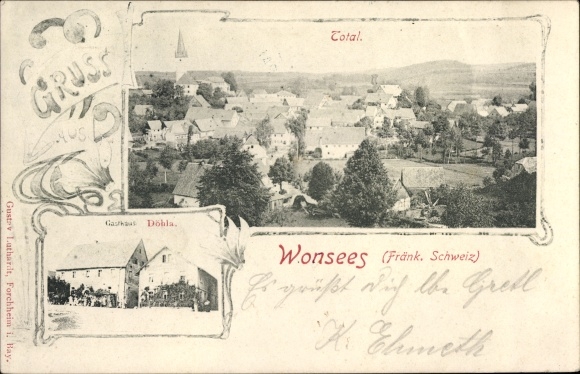 GRUSS
AUS
Total.
Gasthaus Döhla.
Wonsees (Fränk. Schweiz)
Es grüßt Dich lbe Gretl
K. Ehmeth
Gustav Luthardt, Forchheim i. Bay.